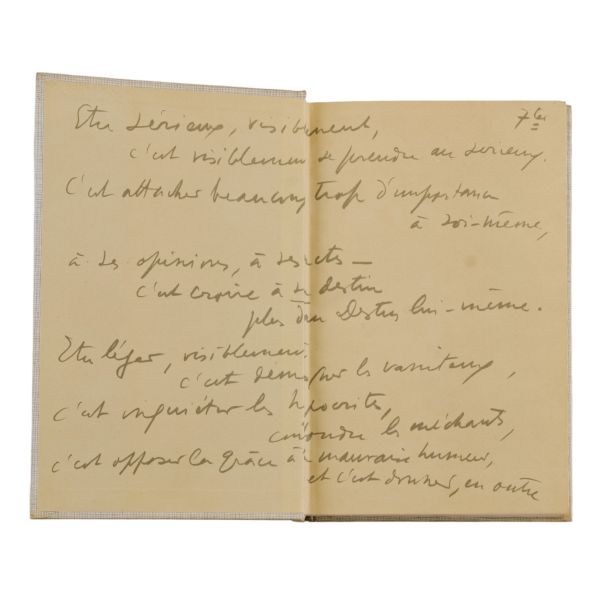 7bre
Etre sérieux, visiblement,
c'est visiblement se prendre au sérieux.
C'est attacher beaucoup trop d'importance
à soi-même,
à ses opinions, à ses actes —
c'est croire à son destin
plus qu'au Destin lui-même.
Etre léger, visiblement,
c'est les vaniteux,
c'est inquiéter les hypocrites,
les méchants,
c'est opposer la grâce à la mauvaise humeur,
et c'est donner, en outre